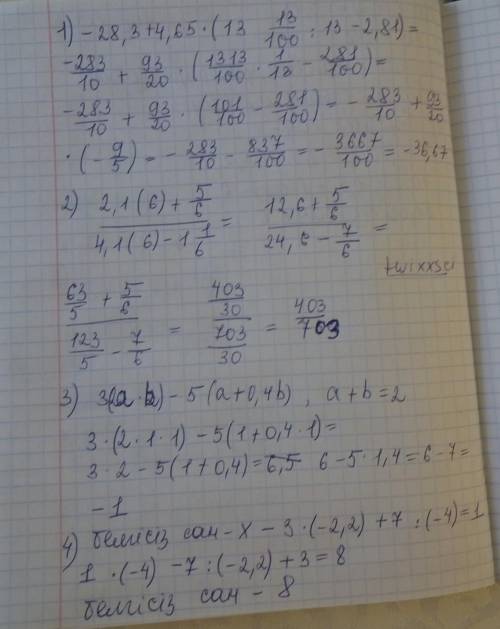 1) -28,3+4,65·(13 13/100 : 13 - 2,81)=
-283/10 + 93/20 · (1313/100 · 1/13 - 281/100)=
-283/10 + 93/20 · (101/100 - 281/100) = - 283/10 + 93/20
·(- 9/5) = - 283/10 - 837/100 = - 3667/100 = -36,67
2) (2,1(6) + 5/6)/(4,1(6) - 1 1/6) = (12,6 + 5/6)/(24,6 - 7/6) =
(63/5 + 5/6)/(123/5 - 7/6) = (403/30)/(703/30) = 403/703
3) - 5(a+0,4b) , a+b=2
3·(2·1·1) - 5(1+0,4·1)=
3·2 - 5(1+0,4)= 6,5 6-5·1,4=6-7=
-1
4) белгісіз сан - x - 3·(-2,2) + 7 : (-4) = 1
1 ·(-4) - 7 : (-2,2) + 3 = 8
белгісіз сан - 8